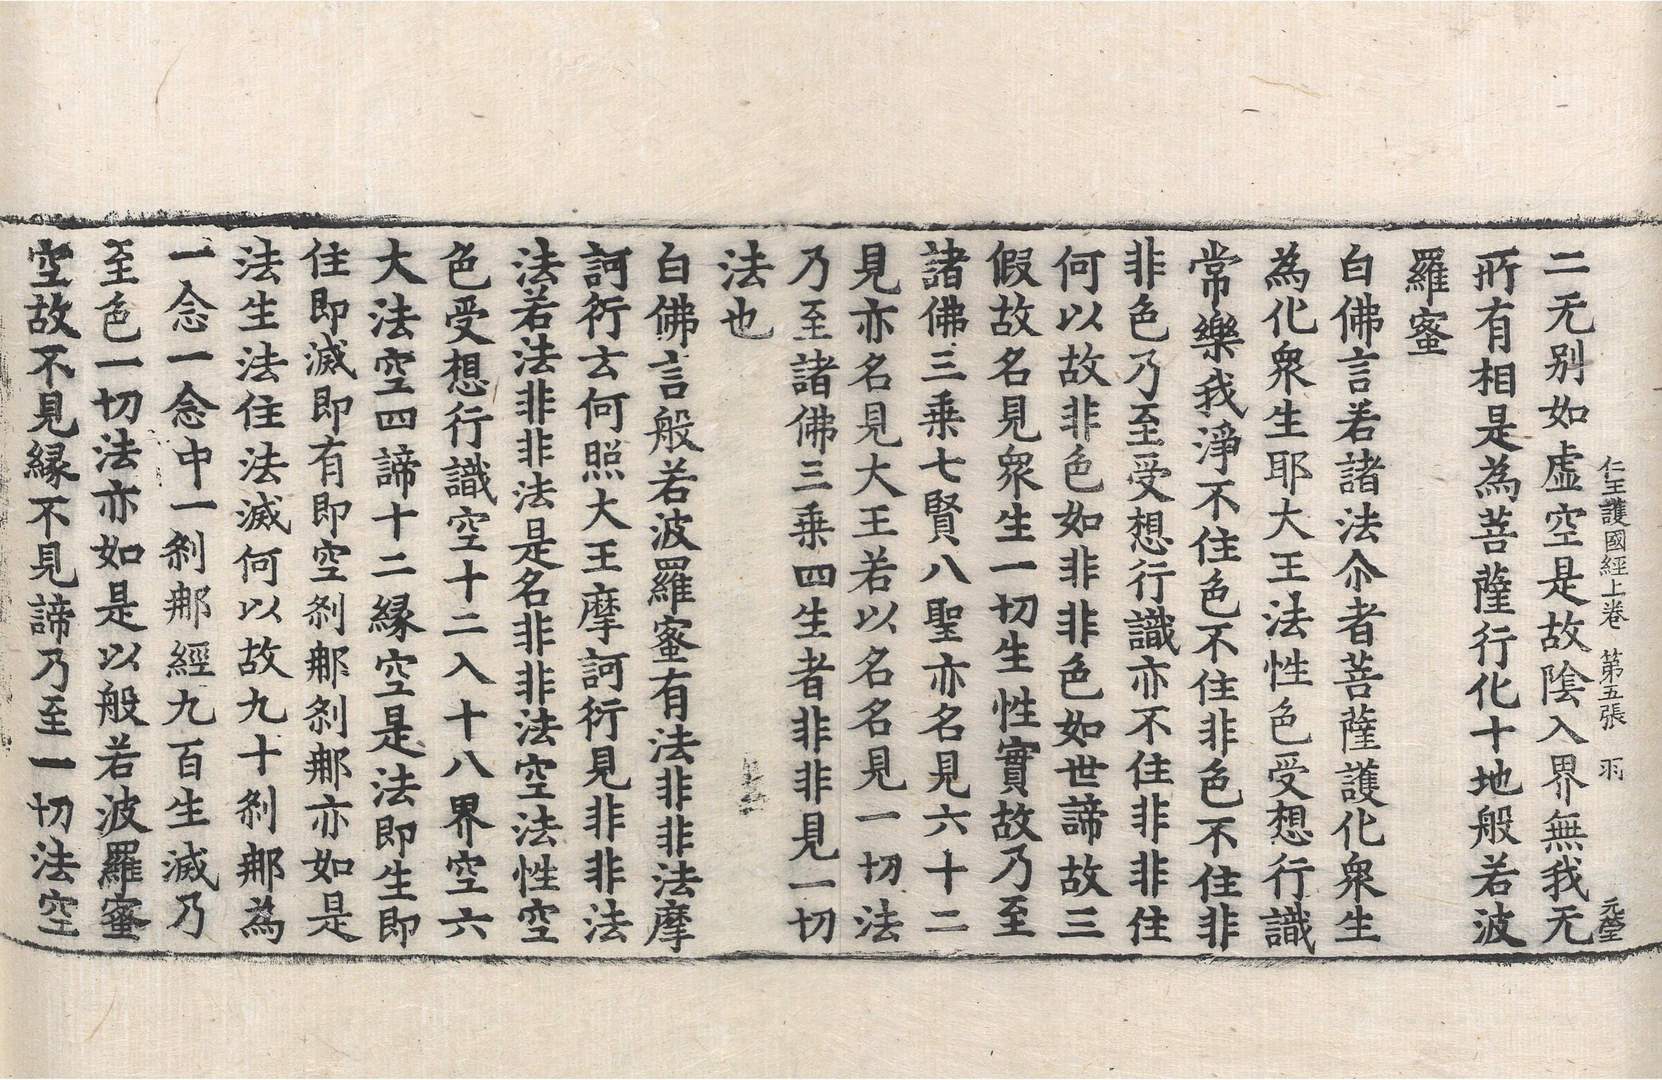 仁王護國經上卷 第五張 羽 元瑩
二无别如虛空是故陰入界無我无
所有相是為菩薩行化十地般若波
羅蜜
白佛言若諸法尒者菩薩護化衆生
為化衆生耶大王法性色受想行識
常樂我淨不住色不住非色不住非
非色乃至受想行識亦不住非非住
何以故非色如非非色如世諦故三
假故名見衆生一切生性實故乃至
諸佛三乗七賢八聖亦名見六十二
見亦名見大王若以名名見一切法
乃至諸佛三乗四生者非非見一切
法也
白佛言般若波羅蜜有法非非法摩
訶衍云何照大王摩訶衍見非非法
法若法非非法是名非非法空法性空
色受想行識空十二入十八界空六
大法空四諦十二縁空是法即生即
住即滅即有即空刹那刹那亦如是
法生法住法滅何以故九十刹那為
一念一念中一刹那經九百生滅乃
至色一切法亦如是以般若波羅蜜
空故不見縁不見諦乃至一切法空